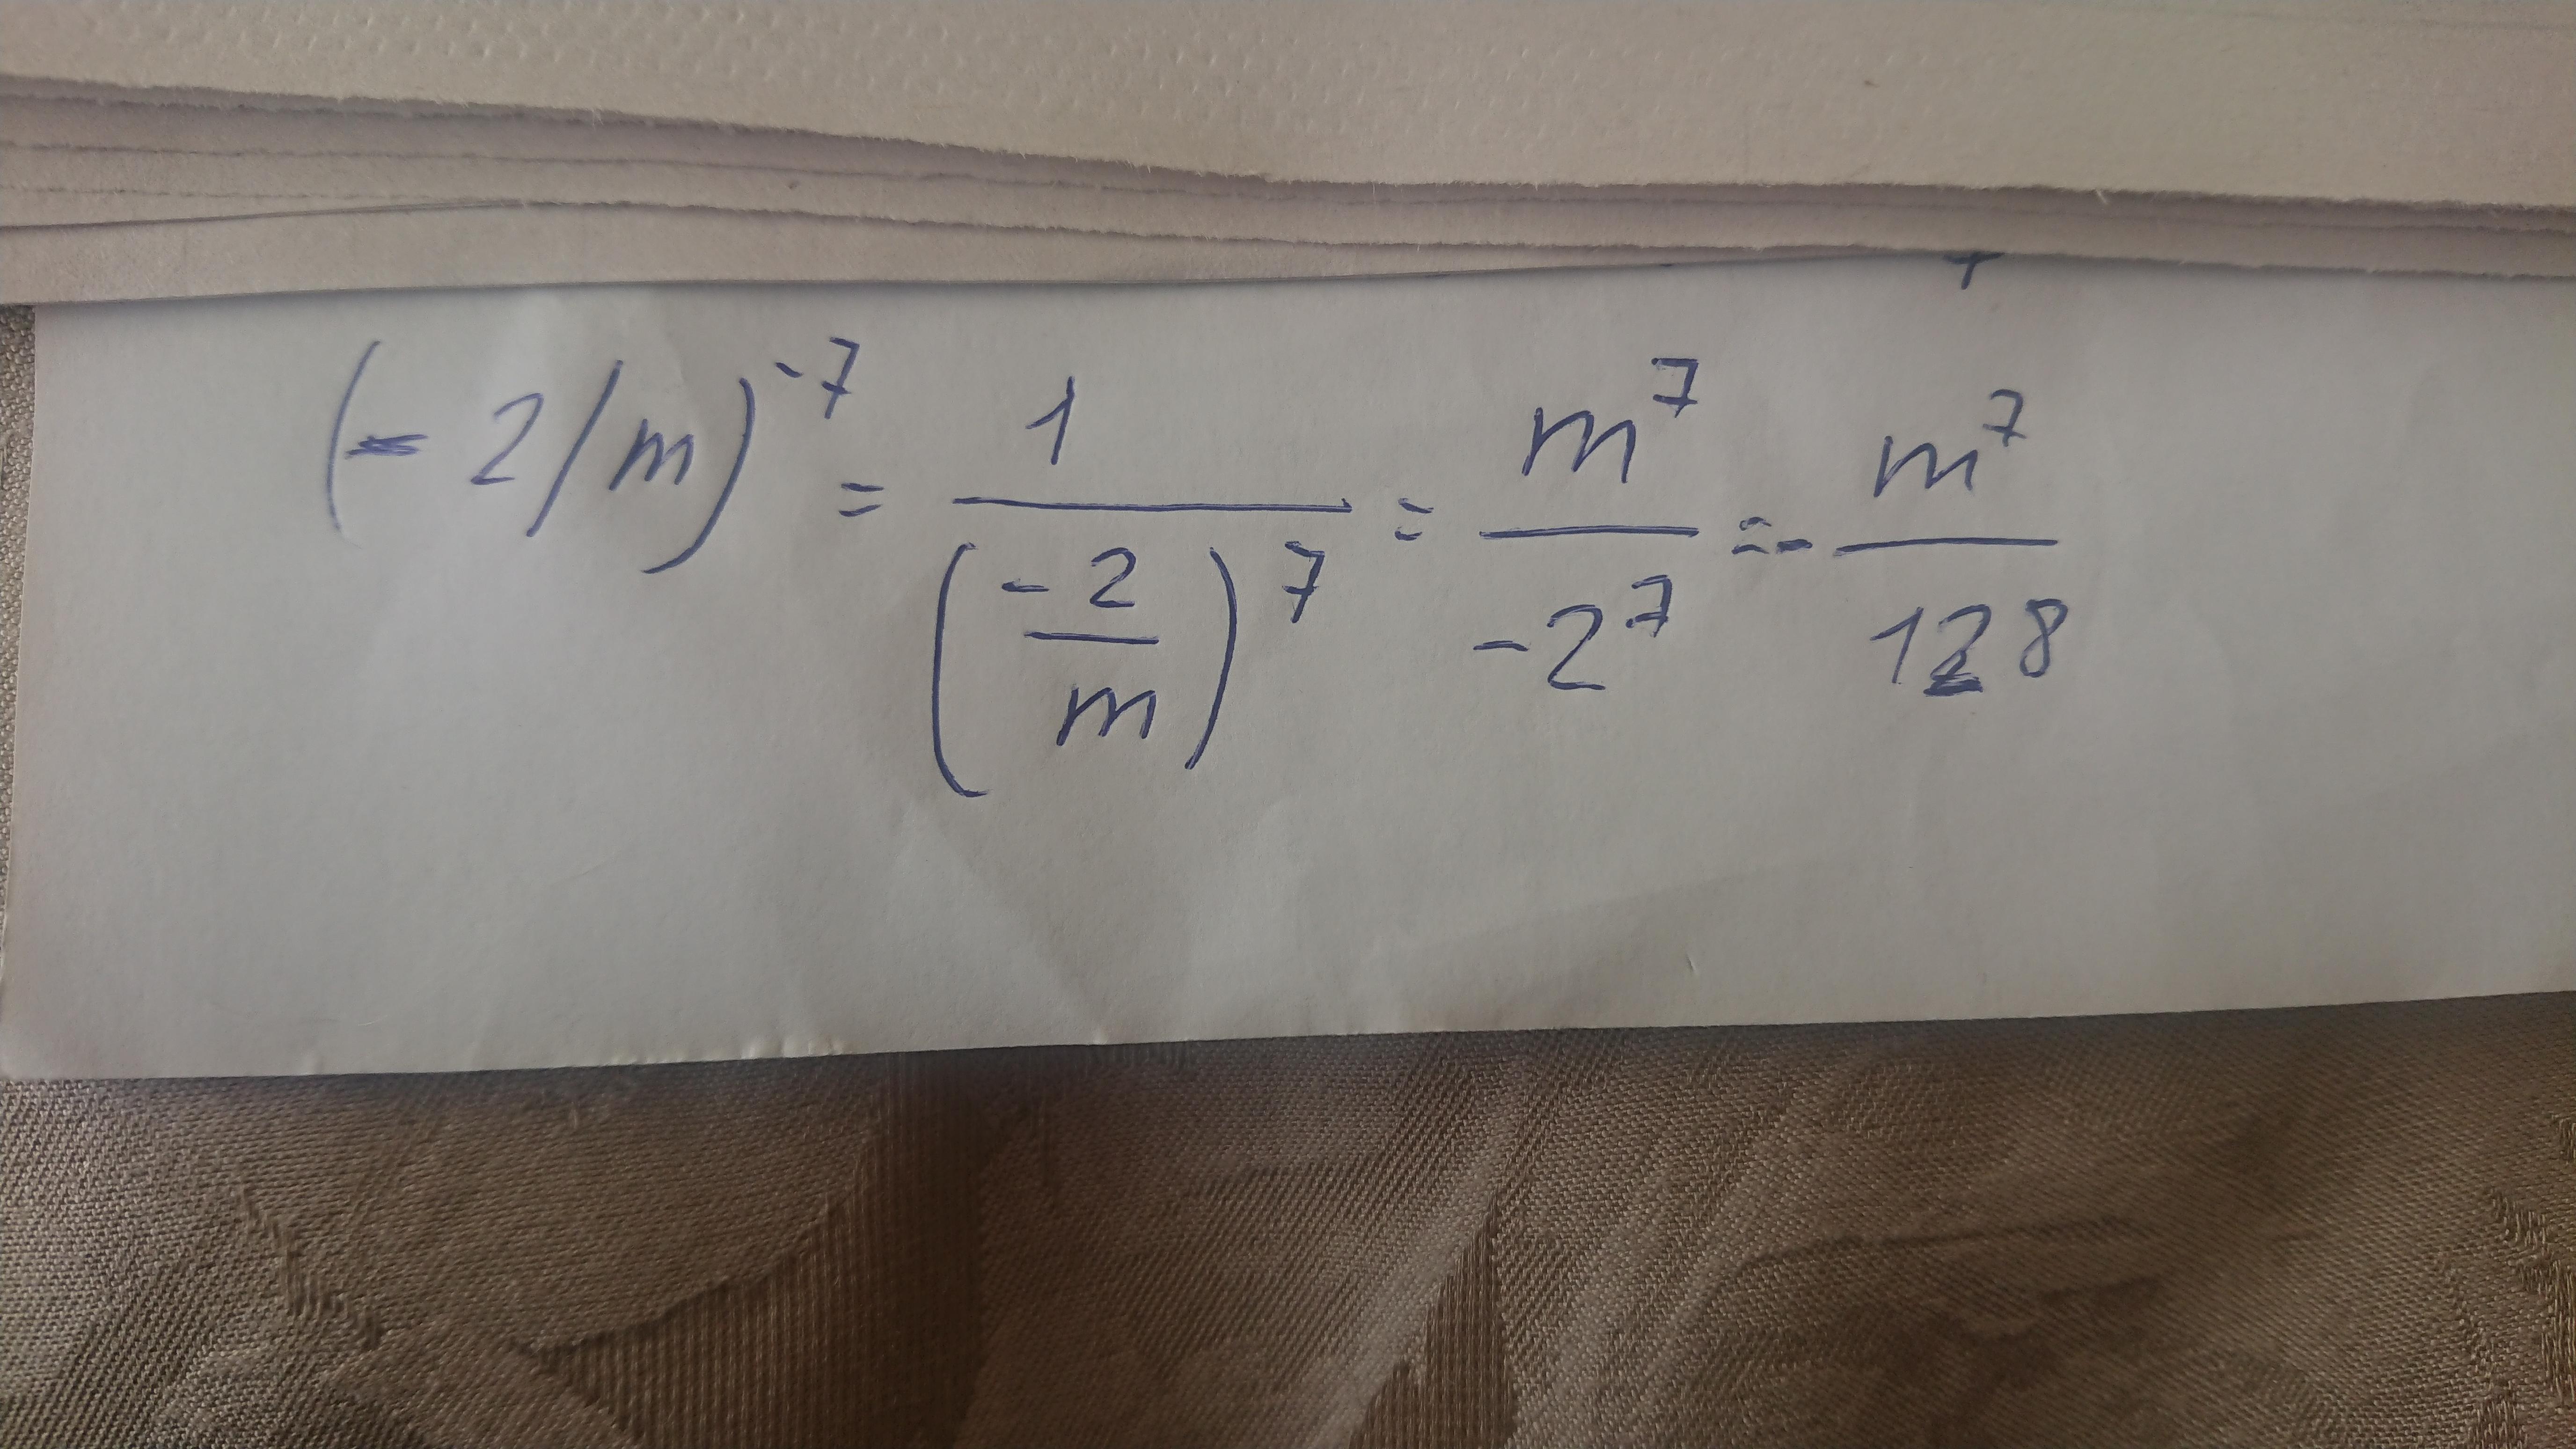 (-2/m)^-7 = 1/(-2/m)^7 = m^7/-2^7 = - m^7/128